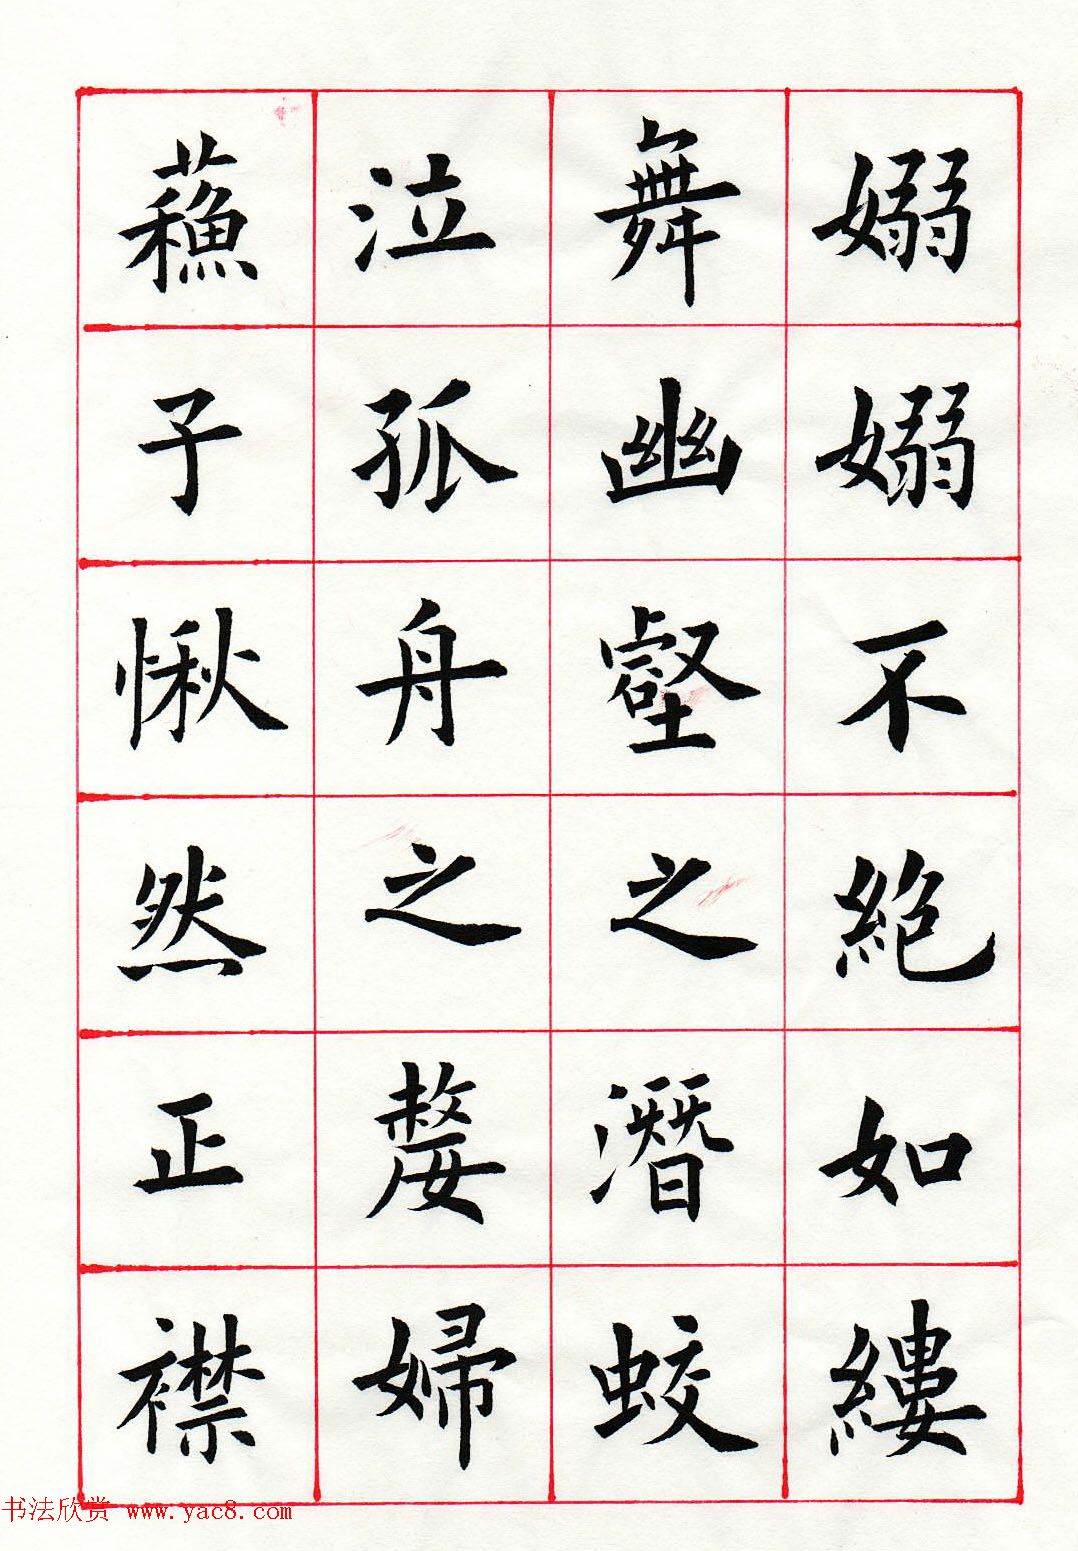 嫋嫋不絕如縷
舞幽壑之潛蛟
泣孤舟之嫠婦
蘇子愀然正襟
书法欣赏 www.yac8.com